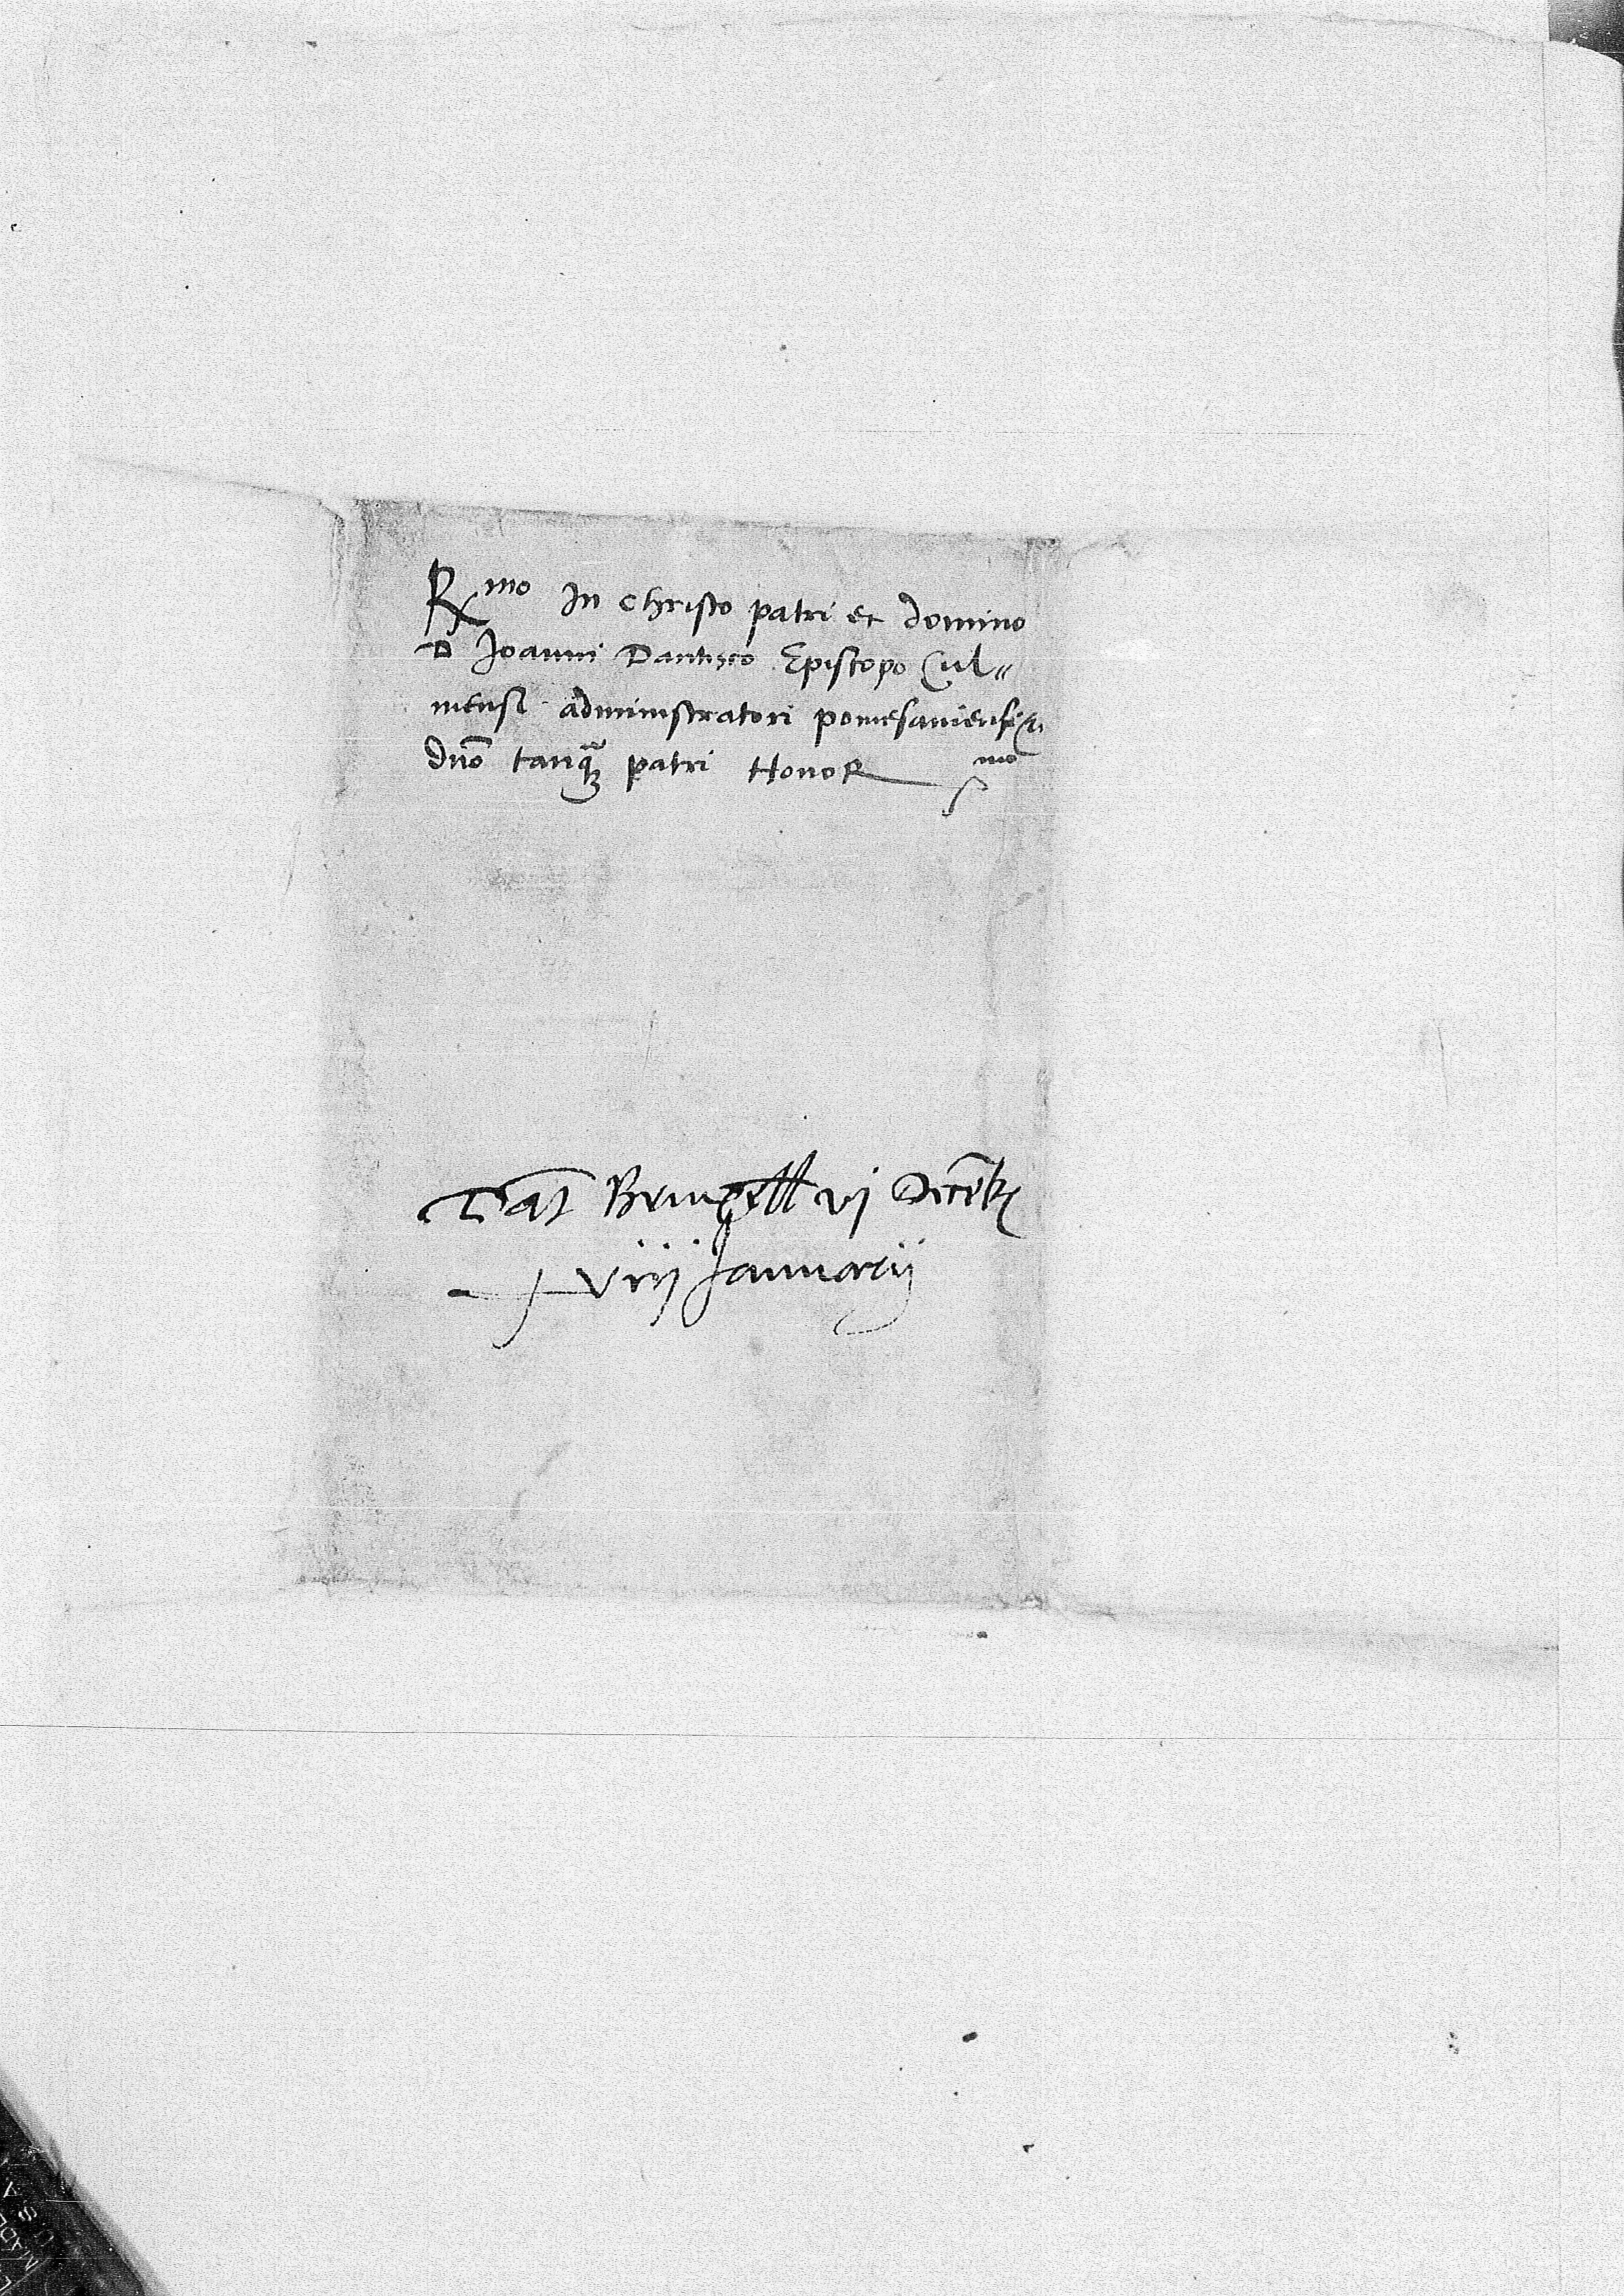 Rmo In Christo patri et domino
D Joanni Dantisco Episcopo Cul〃
mensi administratori pomesaniensi
dno tanq patri HonoR mo
Dat Bruxell vj Decemb
viij Januarij